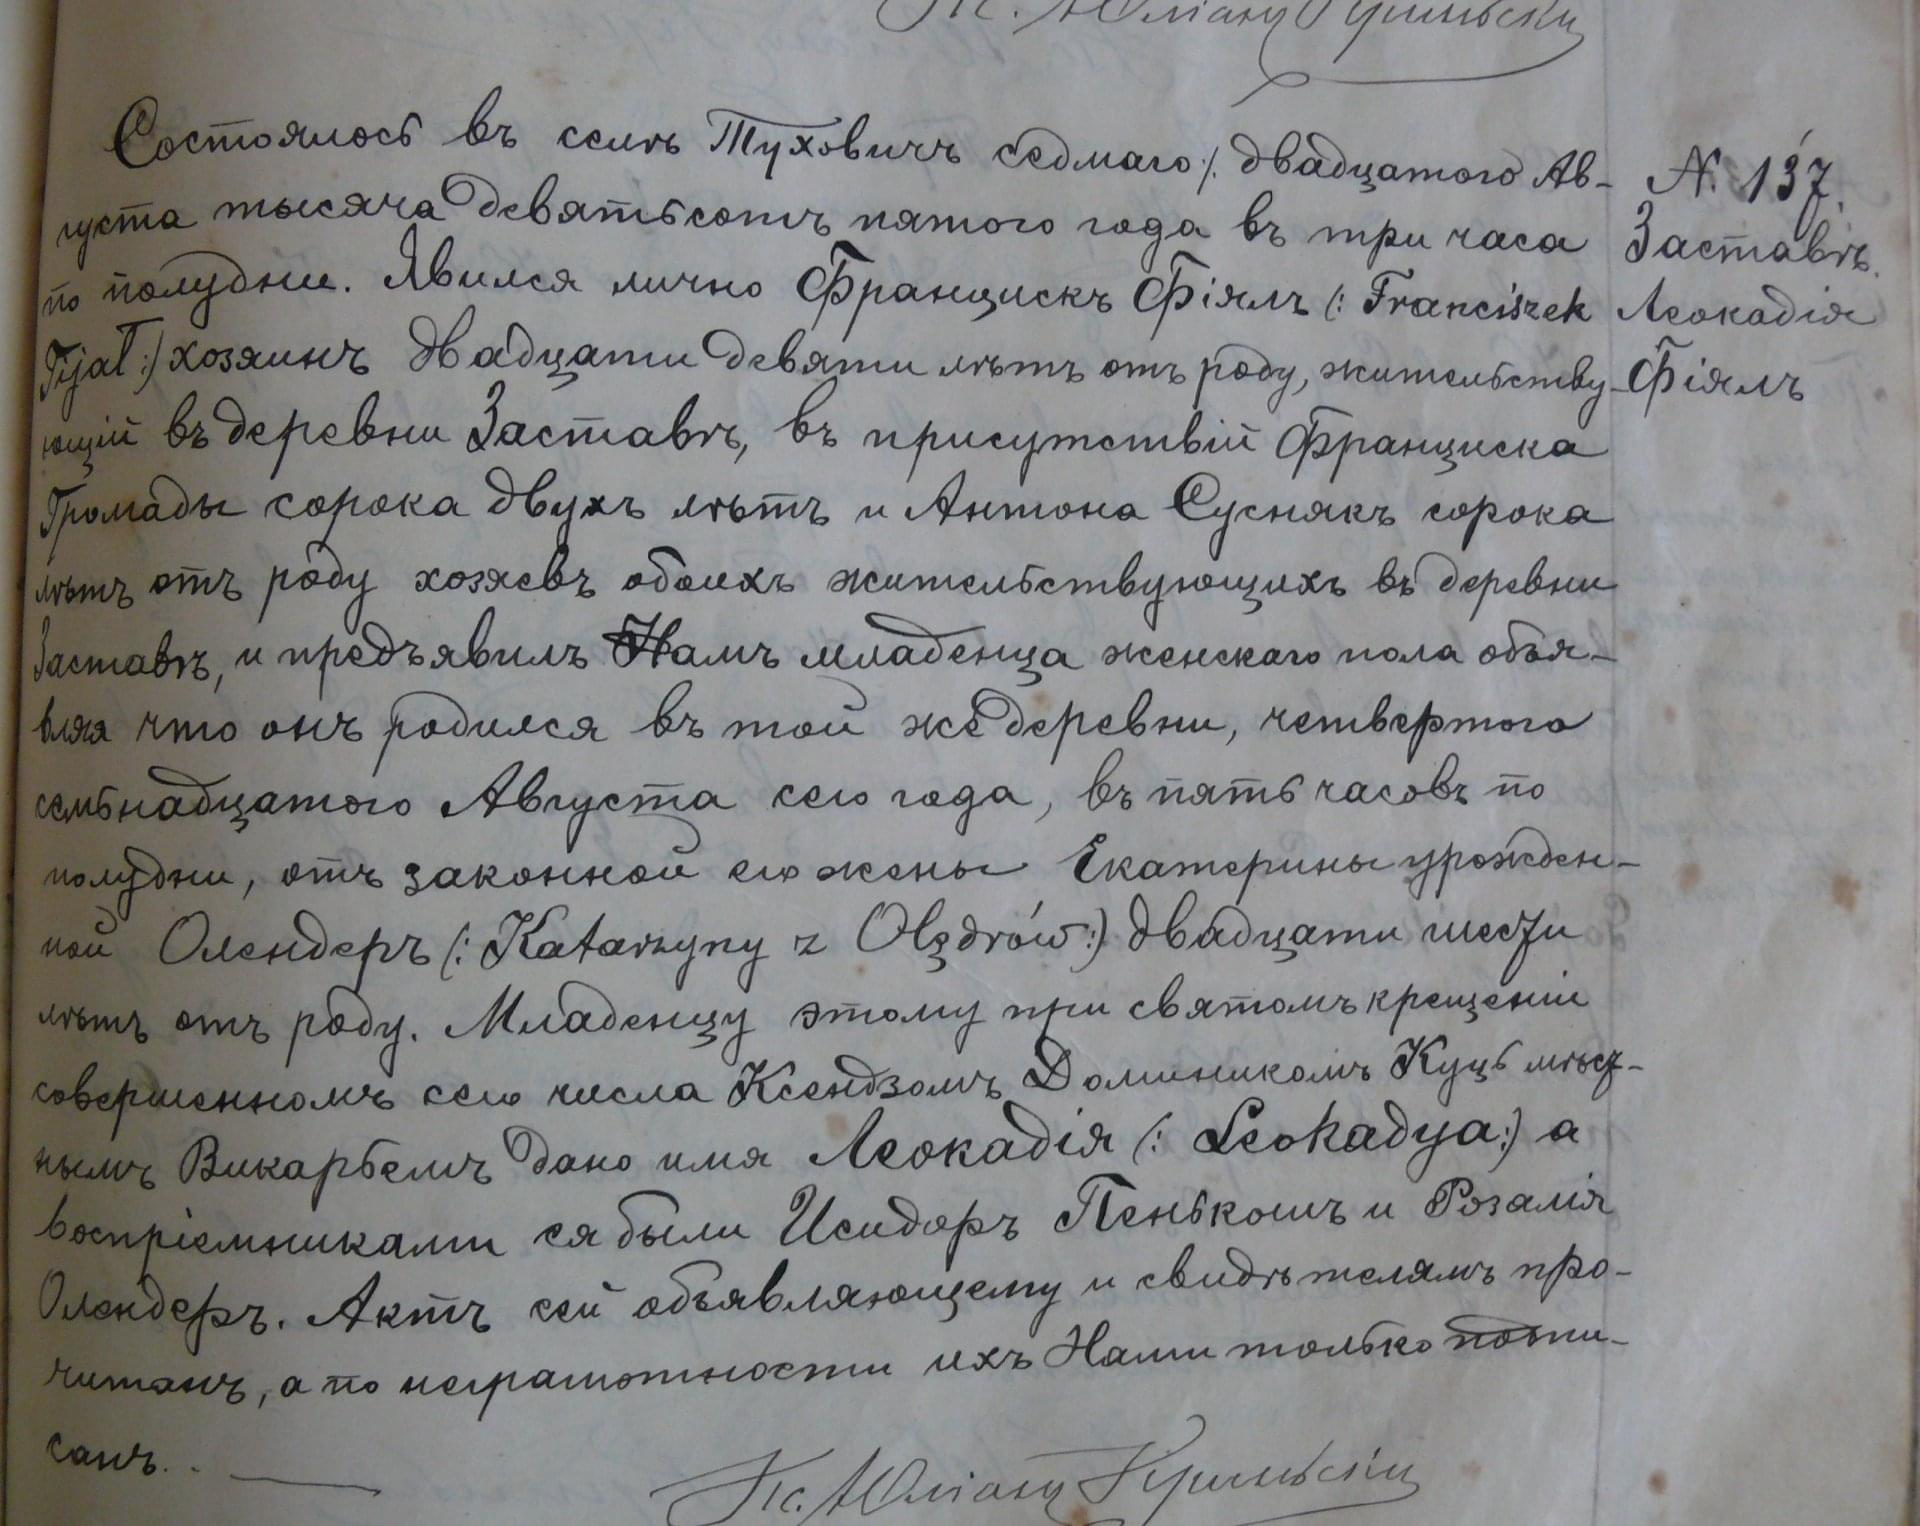 Кс. Юліанъ
Состоялось въ селѣ Туховичъ седмаго/. двадцатого Ав-
густа тысяча девятьсотъ пятого года въ три часа
по полудни. Явился лично Францискъ Фіялъ (: Franciszek
Fijał :) хозяинъ двадцати девяти лѣтъ отъ роду, жительству-
ющій въ деревни Заставѣ, въ присутствій Франциска
Громады сорока двухъ лѣтъ и Антона Суснякъ сорока
лѣтъ отъ роду хозяевъ обоихъ жительствующихъ въ деревни
Заставѣ, и предъявилъ Намъ младенца женскаго пола объя-
вляя что онъ родился въ той же деревни, четвертого
семьнадцатого Августа сего года, въ пять часовъ по
полудни, отъ законной его жены Екатерины урожден-
ной Олендеръ (: Katarzyny z Olędrów :) двадцати шести
лѣтъ отъ роду. Младенцу этому при святомъ крещеніи
совершенномъ сего числа Ксендзомъ Доминикомъ Куць мѣст-
нымъ Викарьемъ дано имя Леокадія (: Leokadya :) а
воспріемниками ея были Исидоръ Пенькошъ и Розалія
Олендеръ. Актъ сей объявляющему и свидѣтелямъ про-
читанъ, а по неграмотности ихъ Нами только подпи-
санъ. . —
Кс. Юліанъ
N. 137.
Заставѣ.
Леокадія
Фіялъ